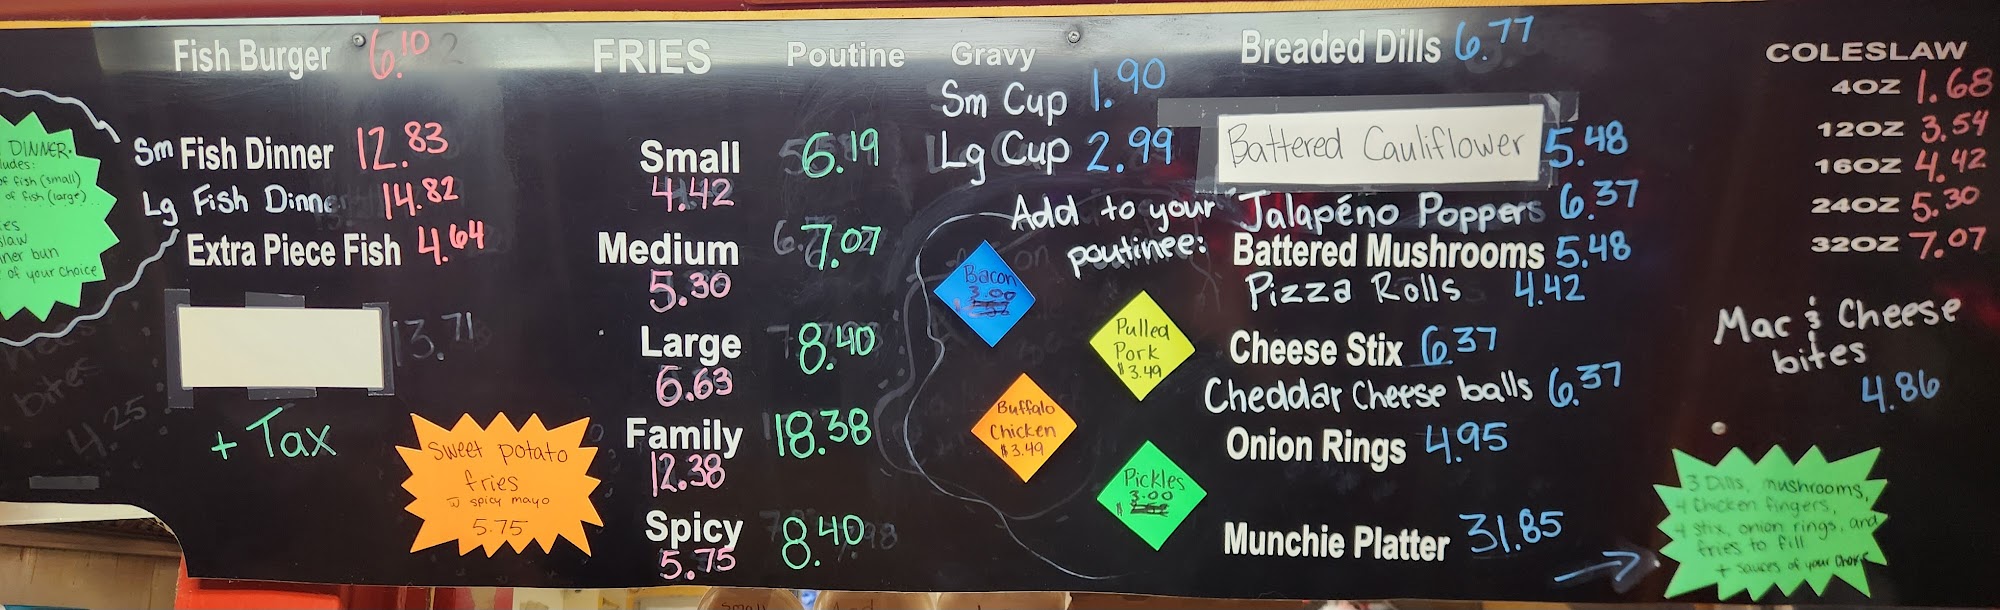 DINNER.
of fish (small)
of fish (large)
slaw
of your choice
bites
4.25
Fish Burger 6.10
Sm Fish Dinner 12.83
Lg Fish Dinne 14.82
Extra Piece Fish 4.64
13.71
+ Tax
Sweet potato
fries
w spicy mayo
5.75
FRIES Poutine
Small 6.19
4.42
Medium 7.07
5.30
Large 8.40
6.63
Family 18.38
12.38
Spicy 8.40
5.75
Gravy
Sm Cup 1.90
Lg Cup 2.99
Add to your
poutinee:
Bacon
3.00
Pulled
Pork
$3.49
Buffalo
Chicken
$3.49
Pickles
3.00
$
Breaded Dills 6.77
Battered Cauliflower 5.48
Jalapéno Poppers 6.37
Battered Mushrooms 5.48
Pizza Rolls 4.42
Cheese Stix 6.37
Cheddar Cheese balls 6.37
Onion Rings 4.95
Munchie Platter 31.85
COLESLAW
4OZ 1.68
12OZ 3.54
16OZ 4.42
24OZ 5.30
32OZ 7.07
Mac & Cheese
bites
4.86
3 Dills, mushrooms,
4 Chicken fingers,
4 stix, onion rings, and
fries to fill
+ sauces of your choice